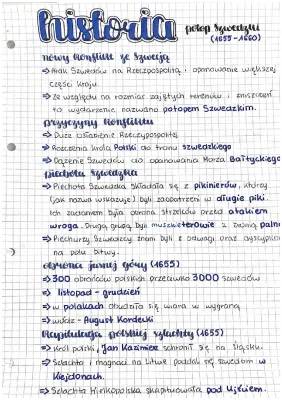 historia
potop Szwedzki
(1655-1660)
nowy konflikt ze Szwecją
⇒ Atak Szwedów na Rzeczpospolitą i opanowanie większej
części kraju
⇒ Ze względu na rozmiar zajętych terenów i zniszczeń
to wydarzenie nazwano potopem Szwedzkim.
przyczyny konfliktu
⇒ Duże osłabienie Rzeczypospolitej
⇒ Roszczenia króla Polski do tronu szwedzkiego
⇒ Dążenie Szwedów do opanowania Morza Bałtyckiego
piechota szwedzka
⇒ Piechota Szwedzka składała się z pikinierów, którzy
(jak nazwa wskazuje) byli zaopatrzeni w długie piki.
Ich zadaniem była obrona strzelców przed atakiem
wroga. Drugą grupą byli muszkieterowie z bronią palną
⇒ Piechurzy Szwedzcy znani byli z odwagi oraz dyscypliny
na polu bitwy.
obrona jasnej góry (1655)
⇒ 300 obrońców polskich przeciwko 3000 szwedów
⇒ listopad - grudzień
⇒ w polakach obudziła się wiara w wygraną
⇒ wódz - August Kordecki
Kapitulacja polskiej szlachty (1655)
⇒ Król polski, Jan Kazimierz schronił się na Śląsku.
⇒ Szlachta i magnaci na Litwie poddali się szwedom w
Kiejdanach.
⇒ Szlachta Wielkopolska skapitulowała pod Ujściem.